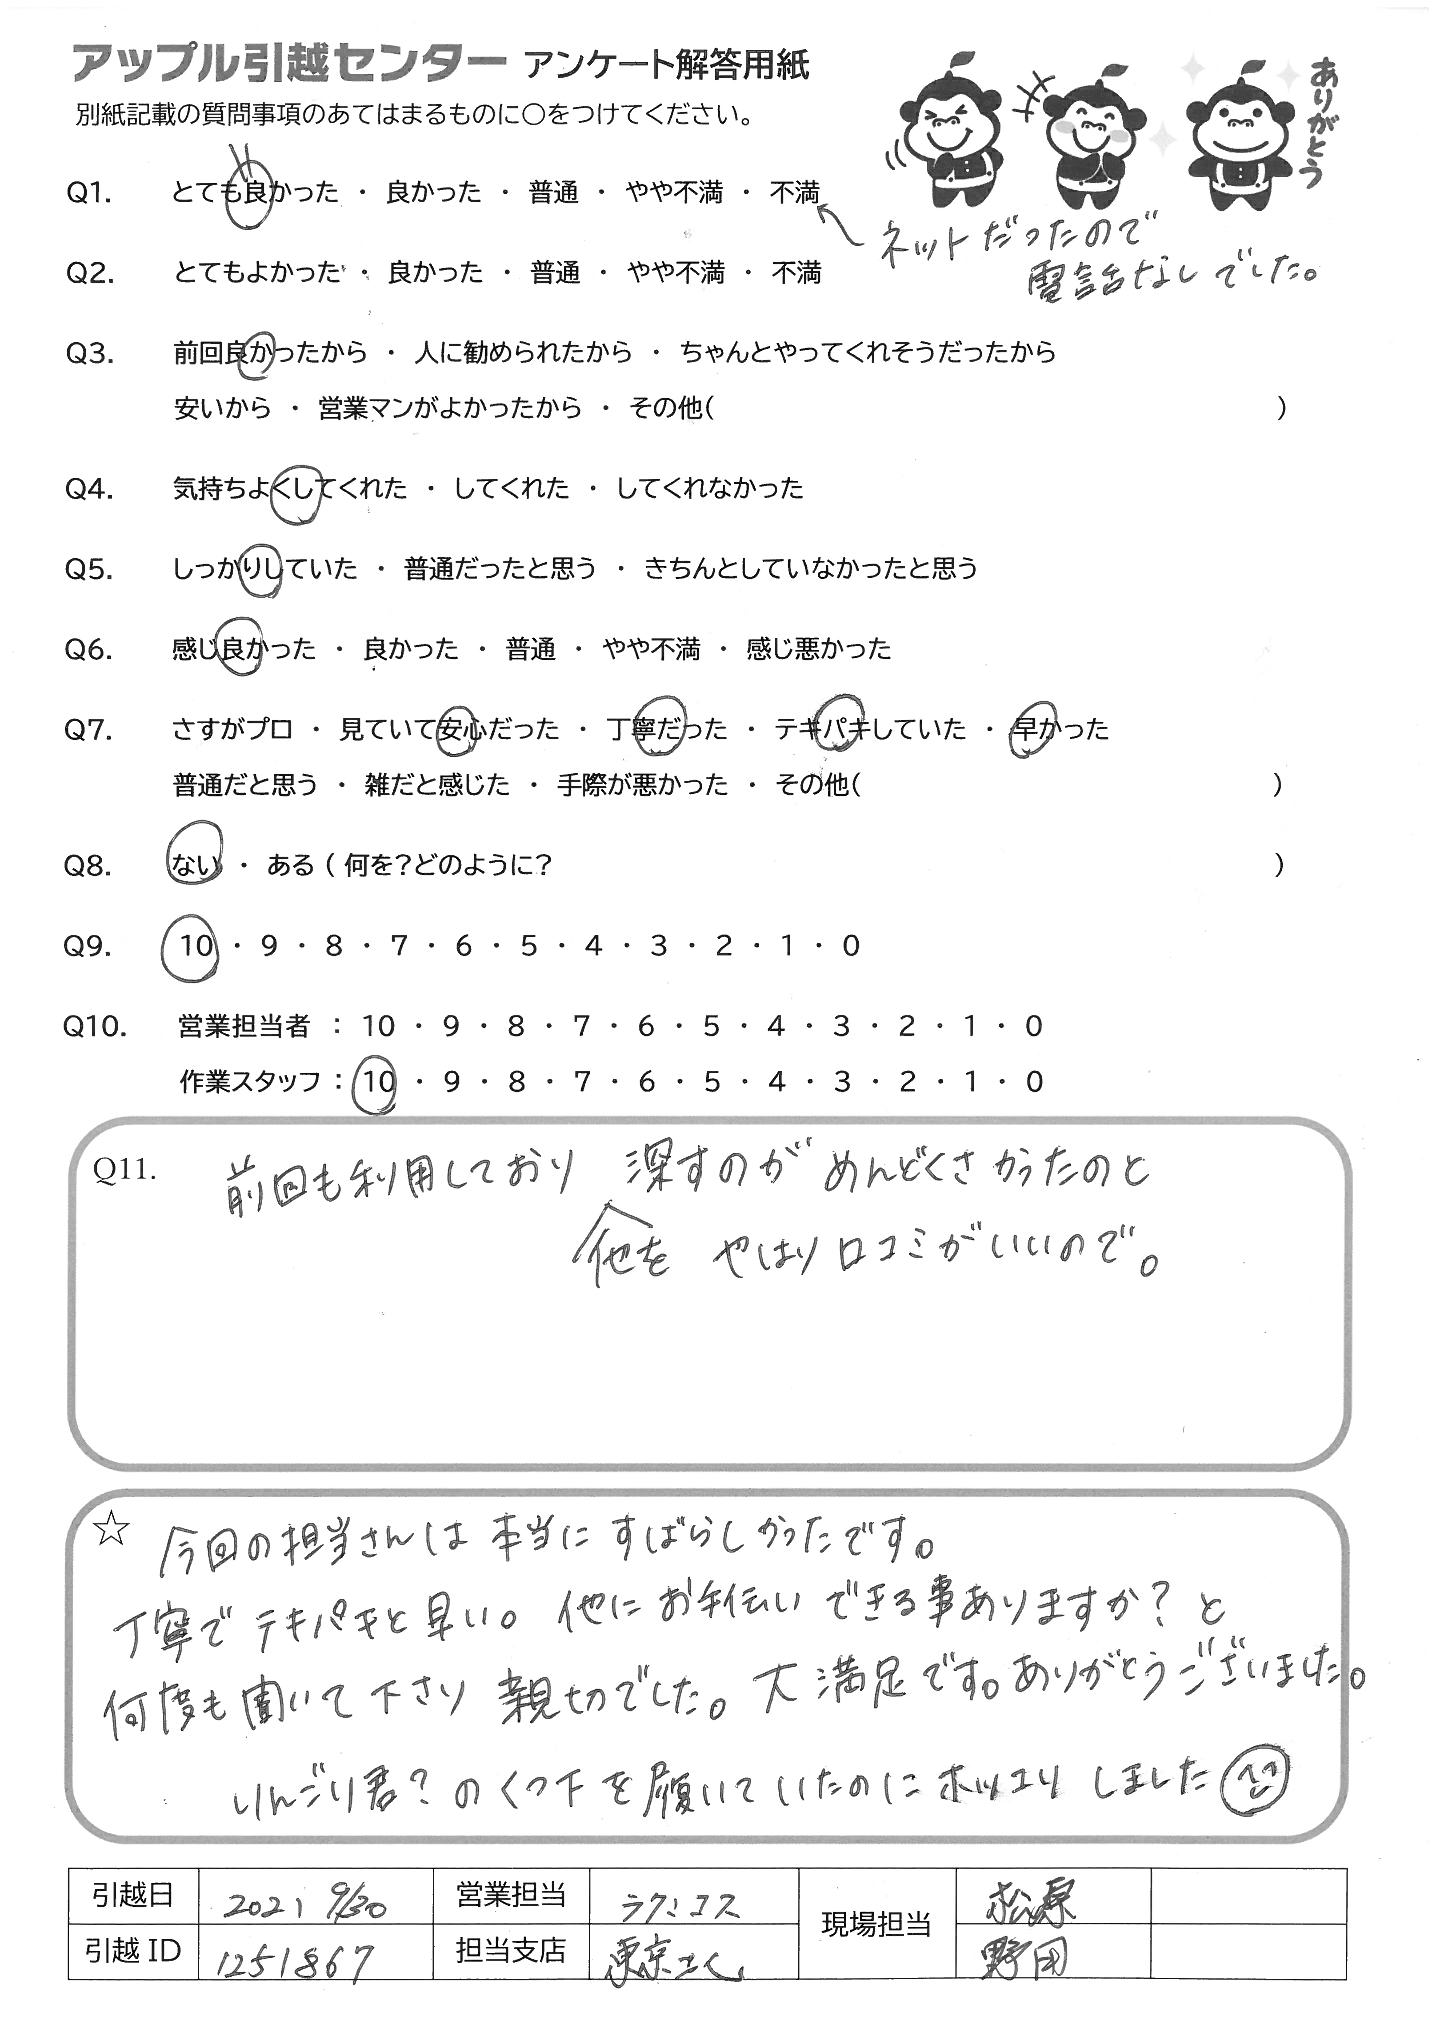 アップル引越センター アンケート解答用紙
別紙記載の質問事項のあてはまるものに〇をつけてください。
ありがとう
Q1. とても良かった ・ 良かった ・ 普通 ・ やや不満 ・ 不満
ネットだったので
電話なしでした。
Q2. とてもよかった ・ 良かった ・ 普通 ・ やや不満 ・ 不満
Q3. 前回良かったから ・ 人に勧められたから ・ ちゃんとやってくれそうだったから
安いから ・ 営業マンがよかったから ・ その他( )
Q4. 気持ちよくしてくれた ・ してくれた ・ してくれなかった
Q5. しっかりしていた ・ 普通だったと思う ・ きちんとしていなかったと思う
Q6. 感じ良かった ・ 良かった ・ 普通 ・ やや不満 ・ 感じ悪かった
Q7. さすがプロ ・ 見ていて安心だった ・ 丁寧だった ・ テキパキしていた ・ 早かった
普通だと思う ・ 雑だと感じた ・ 手際が悪かった ・ その他( )
Q8. ない ・ ある ( 何を?どのように? )
Q9. 10 ・ 9 ・ 8 ・ 7 ・ 6 ・ 5 ・ 4 ・ 3 ・ 2 ・ 1 ・ 0
Q10. 営業担当者 : 10 ・ 9 ・ 8 ・ 7 ・ 6 ・ 5 ・ 4 ・ 3 ・ 2 ・ 1 ・ 0
作業スタッフ : 10 ・ 9 ・ 8 ・ 7 ・ 6 ・ 5 ・ 4 ・ 3 ・ 2 ・ 1 ・ 0
Q11. 前回も利用しており 深すのが めんどくさかったのと
他を やはり口コミがいいので。
☆ 今回の担当さんは 本当に すばらしかったです。
丁寧で テキパキと早い。 他に お手伝い できる事ありますか? と
何度も聞いて下さり 親切でした。 大満足です。ありがとうございました。
りんごり君? のくつ下を履いていたのにホッコリしました
引越日 2021 9/30 営業担当 ラクニコス 現場担当 松原
引越ID 1251867 担当支店 東京 野田